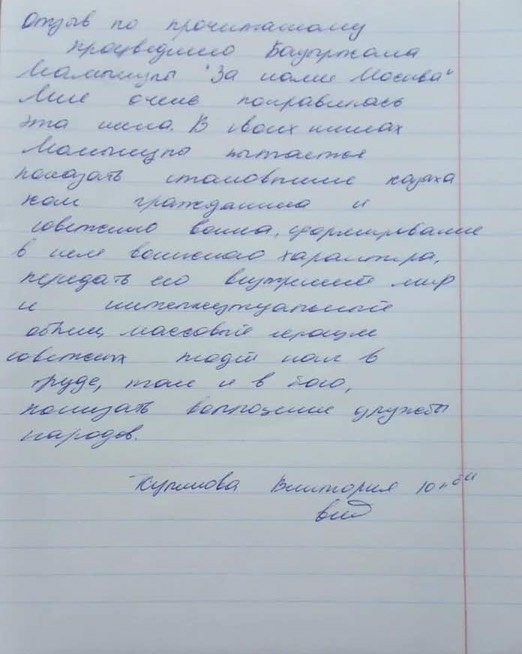 Отзыв по прочитанному
произведению Бауыржана
Момышулы "За нами Москва"
Мне очень понравилась
эта книга. В своих книгах
Момышулы пытается
показать становление казаха
как гражданина и
советского воина, формирование
в нем воинского характера,
передать его внутренний мир
и интеллектуальный
облик, массовый героизм
советских людей как в
труде, так и в бою,
показать воплощение дружбы
народов.
Виктория 10 "б" кл